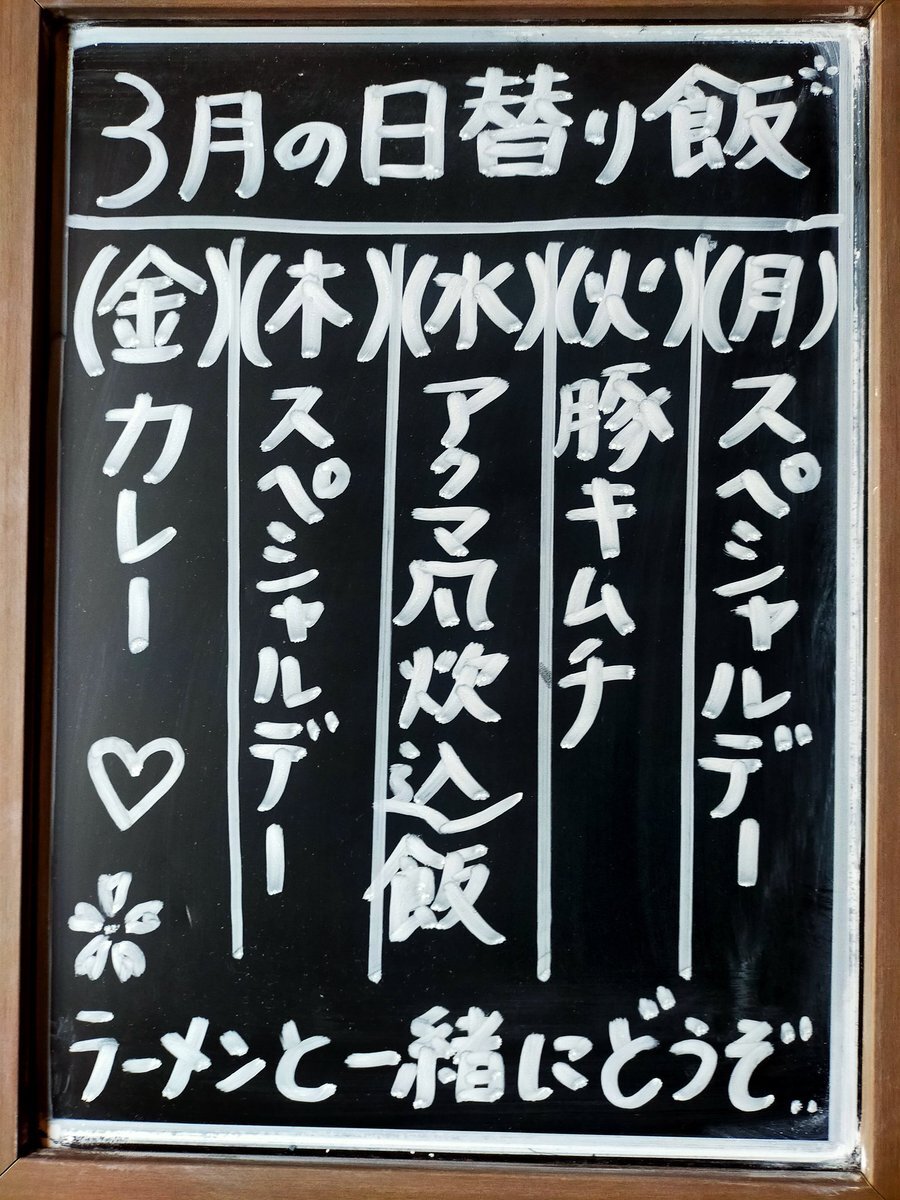 3月の日替り飯
(月)スペシャルデー
(火)豚キムチ
(水)アクマ爪炊込飯
(木)スペシャルデー
(金)カレー♡
ラーメンと一緒にどうぞ